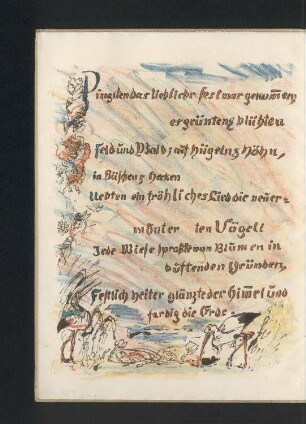 Pfingsten das liebliche Fest war gekommen
es grünten & blühten
Feld und Wald; auf Hügeln & Höhn,
in Büschen & Hecken
Uebten ein fröhliches Lied die neuer=
mũnter ten Vögel!
Jede Wiese sproßte von Blumen in
duftenden Gründen,
Festlich heiter glänzte der Himel und
farbig die Erde.